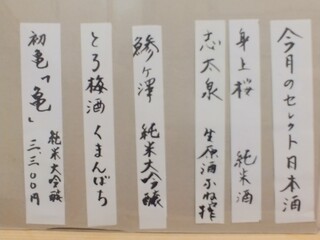 今月のセレクト日本酒
身上桜 純米酒
志太泉 生原酒ふね搾
鯵ヶ澤 純米大吟醸
とろ梅酒 くまんばち
初亀「亀」 純米大吟醸 三、三〇〇円